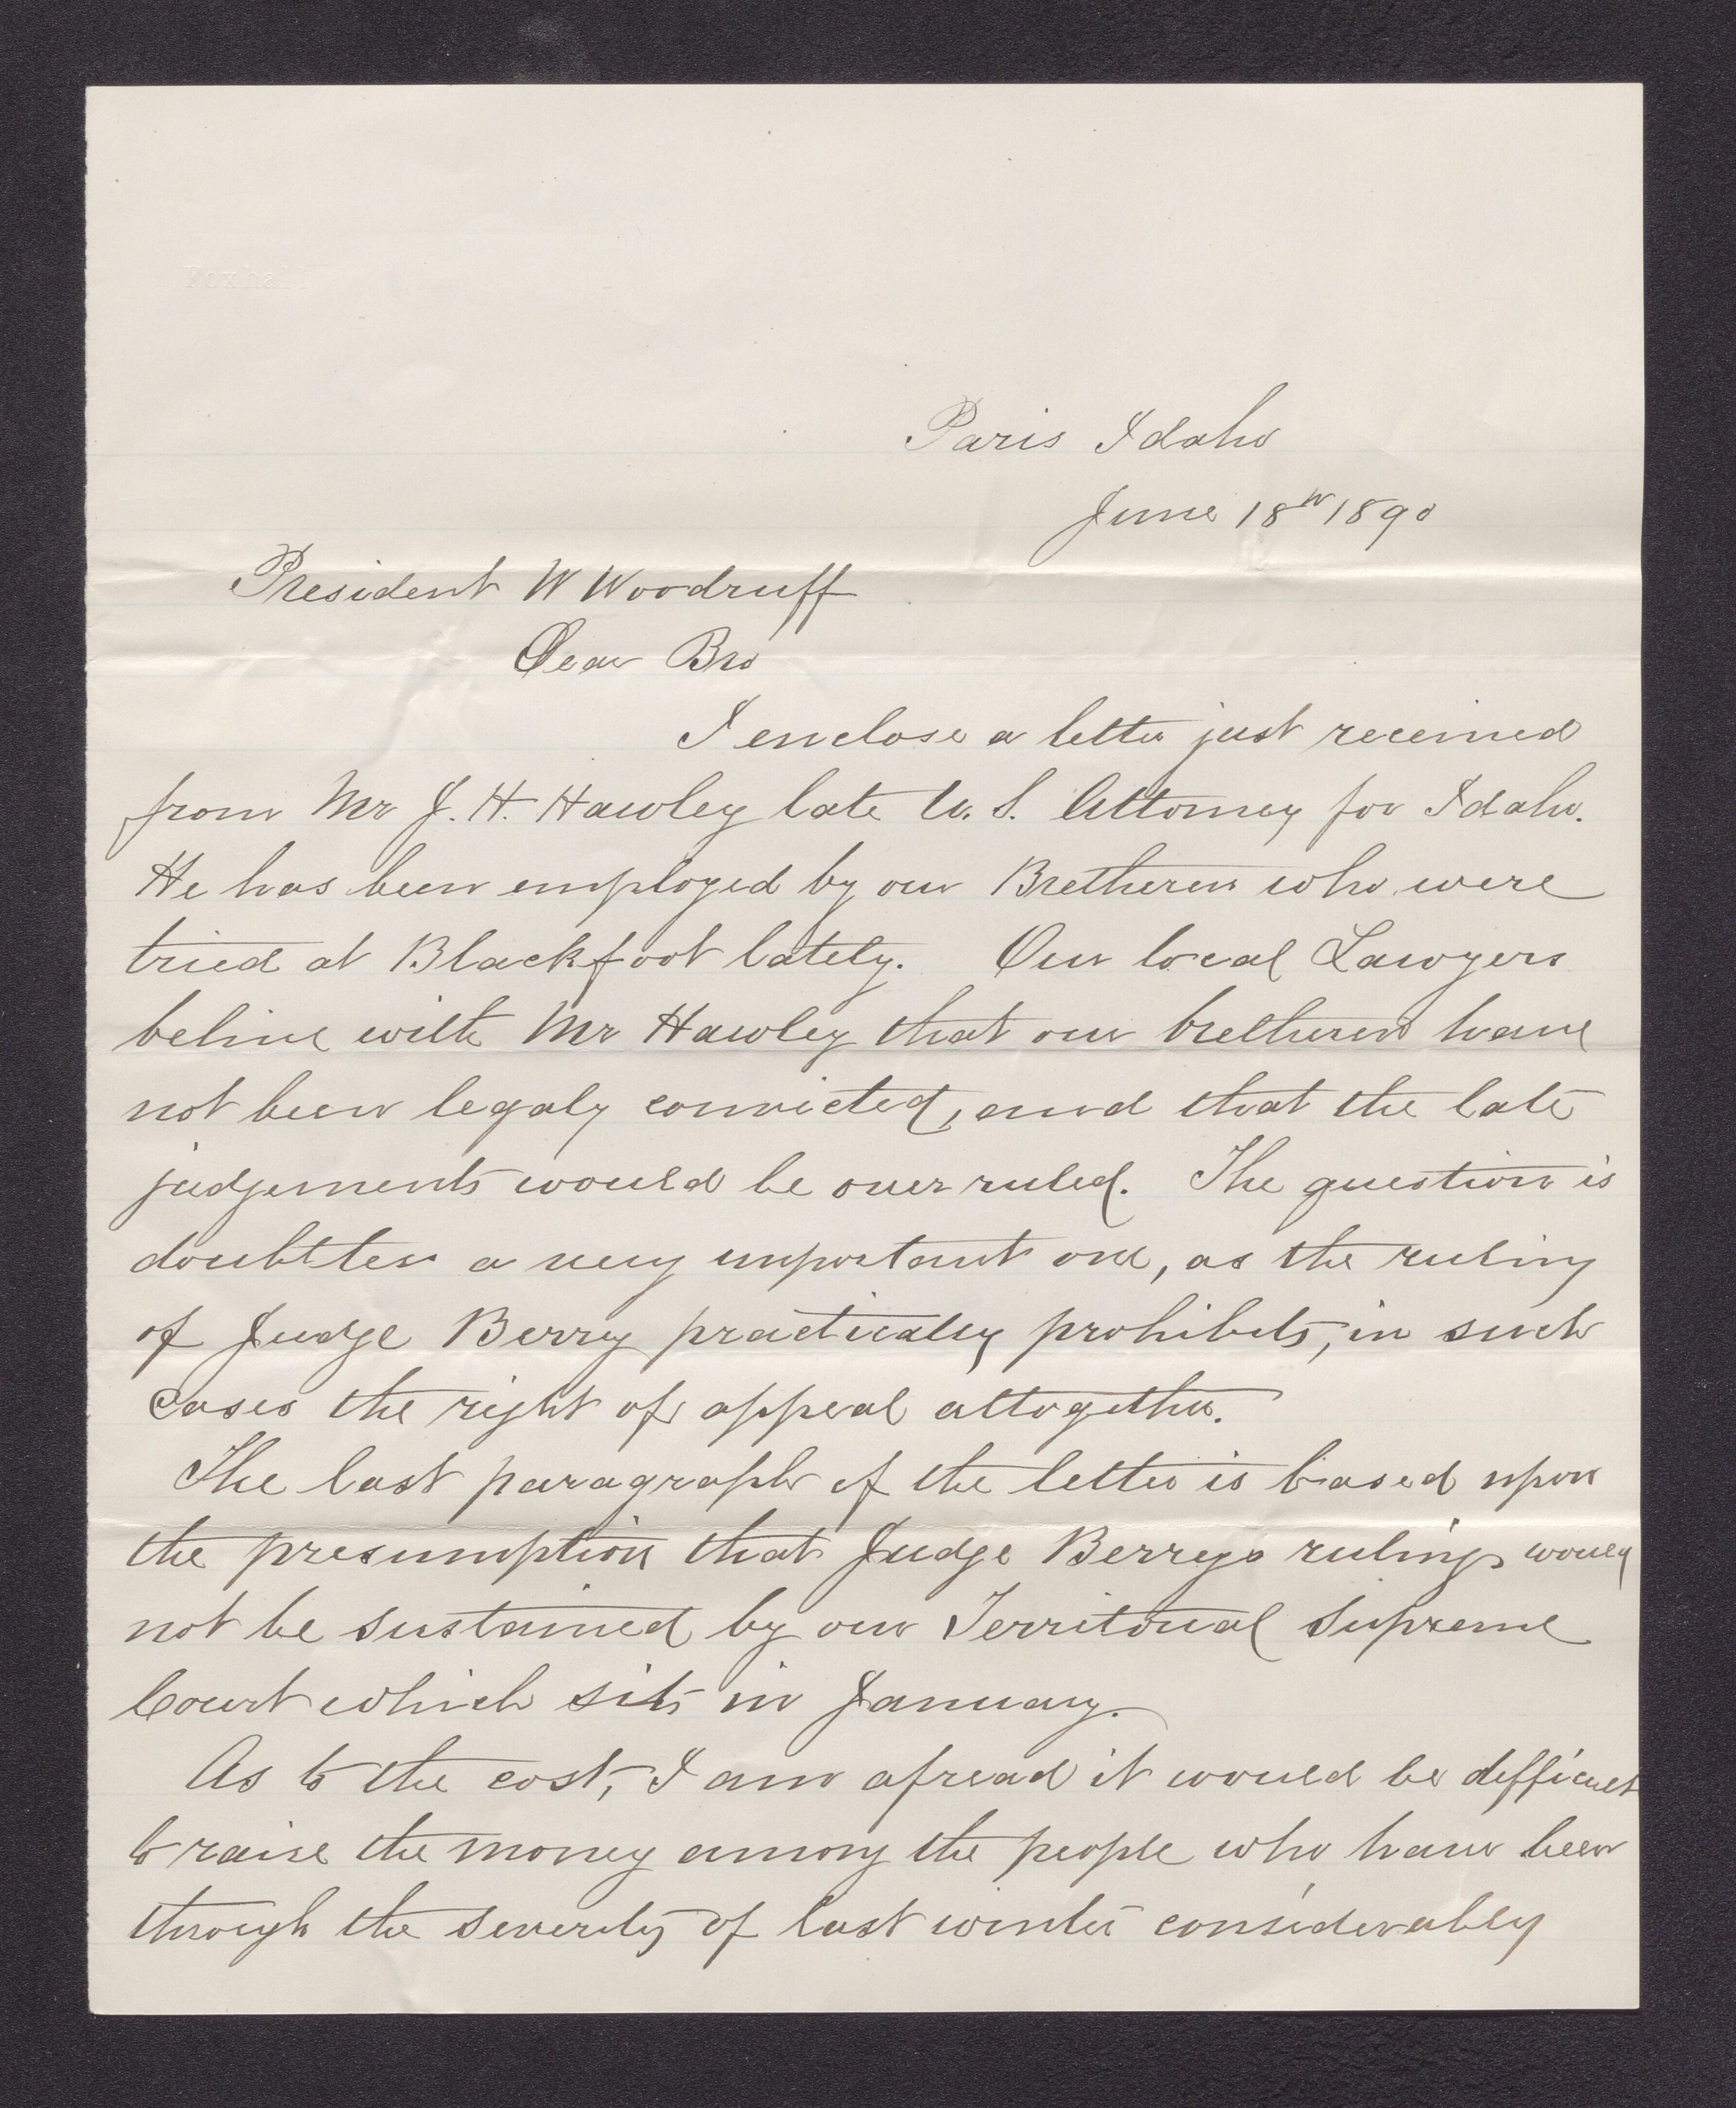 Foxhall
Paris Idaho
June 18th 1890
President W Woodruff
Dear Bro
I enclose a letter just received
from Mr J. H. Hawley late U. S. Attorney for Idaho.
He has been employed by our Bretheren who were
tried at Blackfoot lately. Our local Lawyers
believe with Mr Hawley that our bretheren have
not been legaly convicted, and that the late
judgements would be over ruled. The question is
doubtless a very important one, as the ruling
of Judge Berry practically prohibits, in such
cases the right of appeal altogether.
The last paragraph of the letter is based upon
the presumption that Judge Berrys rulings would
not be sustained by our Territorial Supreme
Court which sits in January.
As to the cost, I am afread it would be difficult
to raise the money among the people who have been
through the severity of last winter considerably